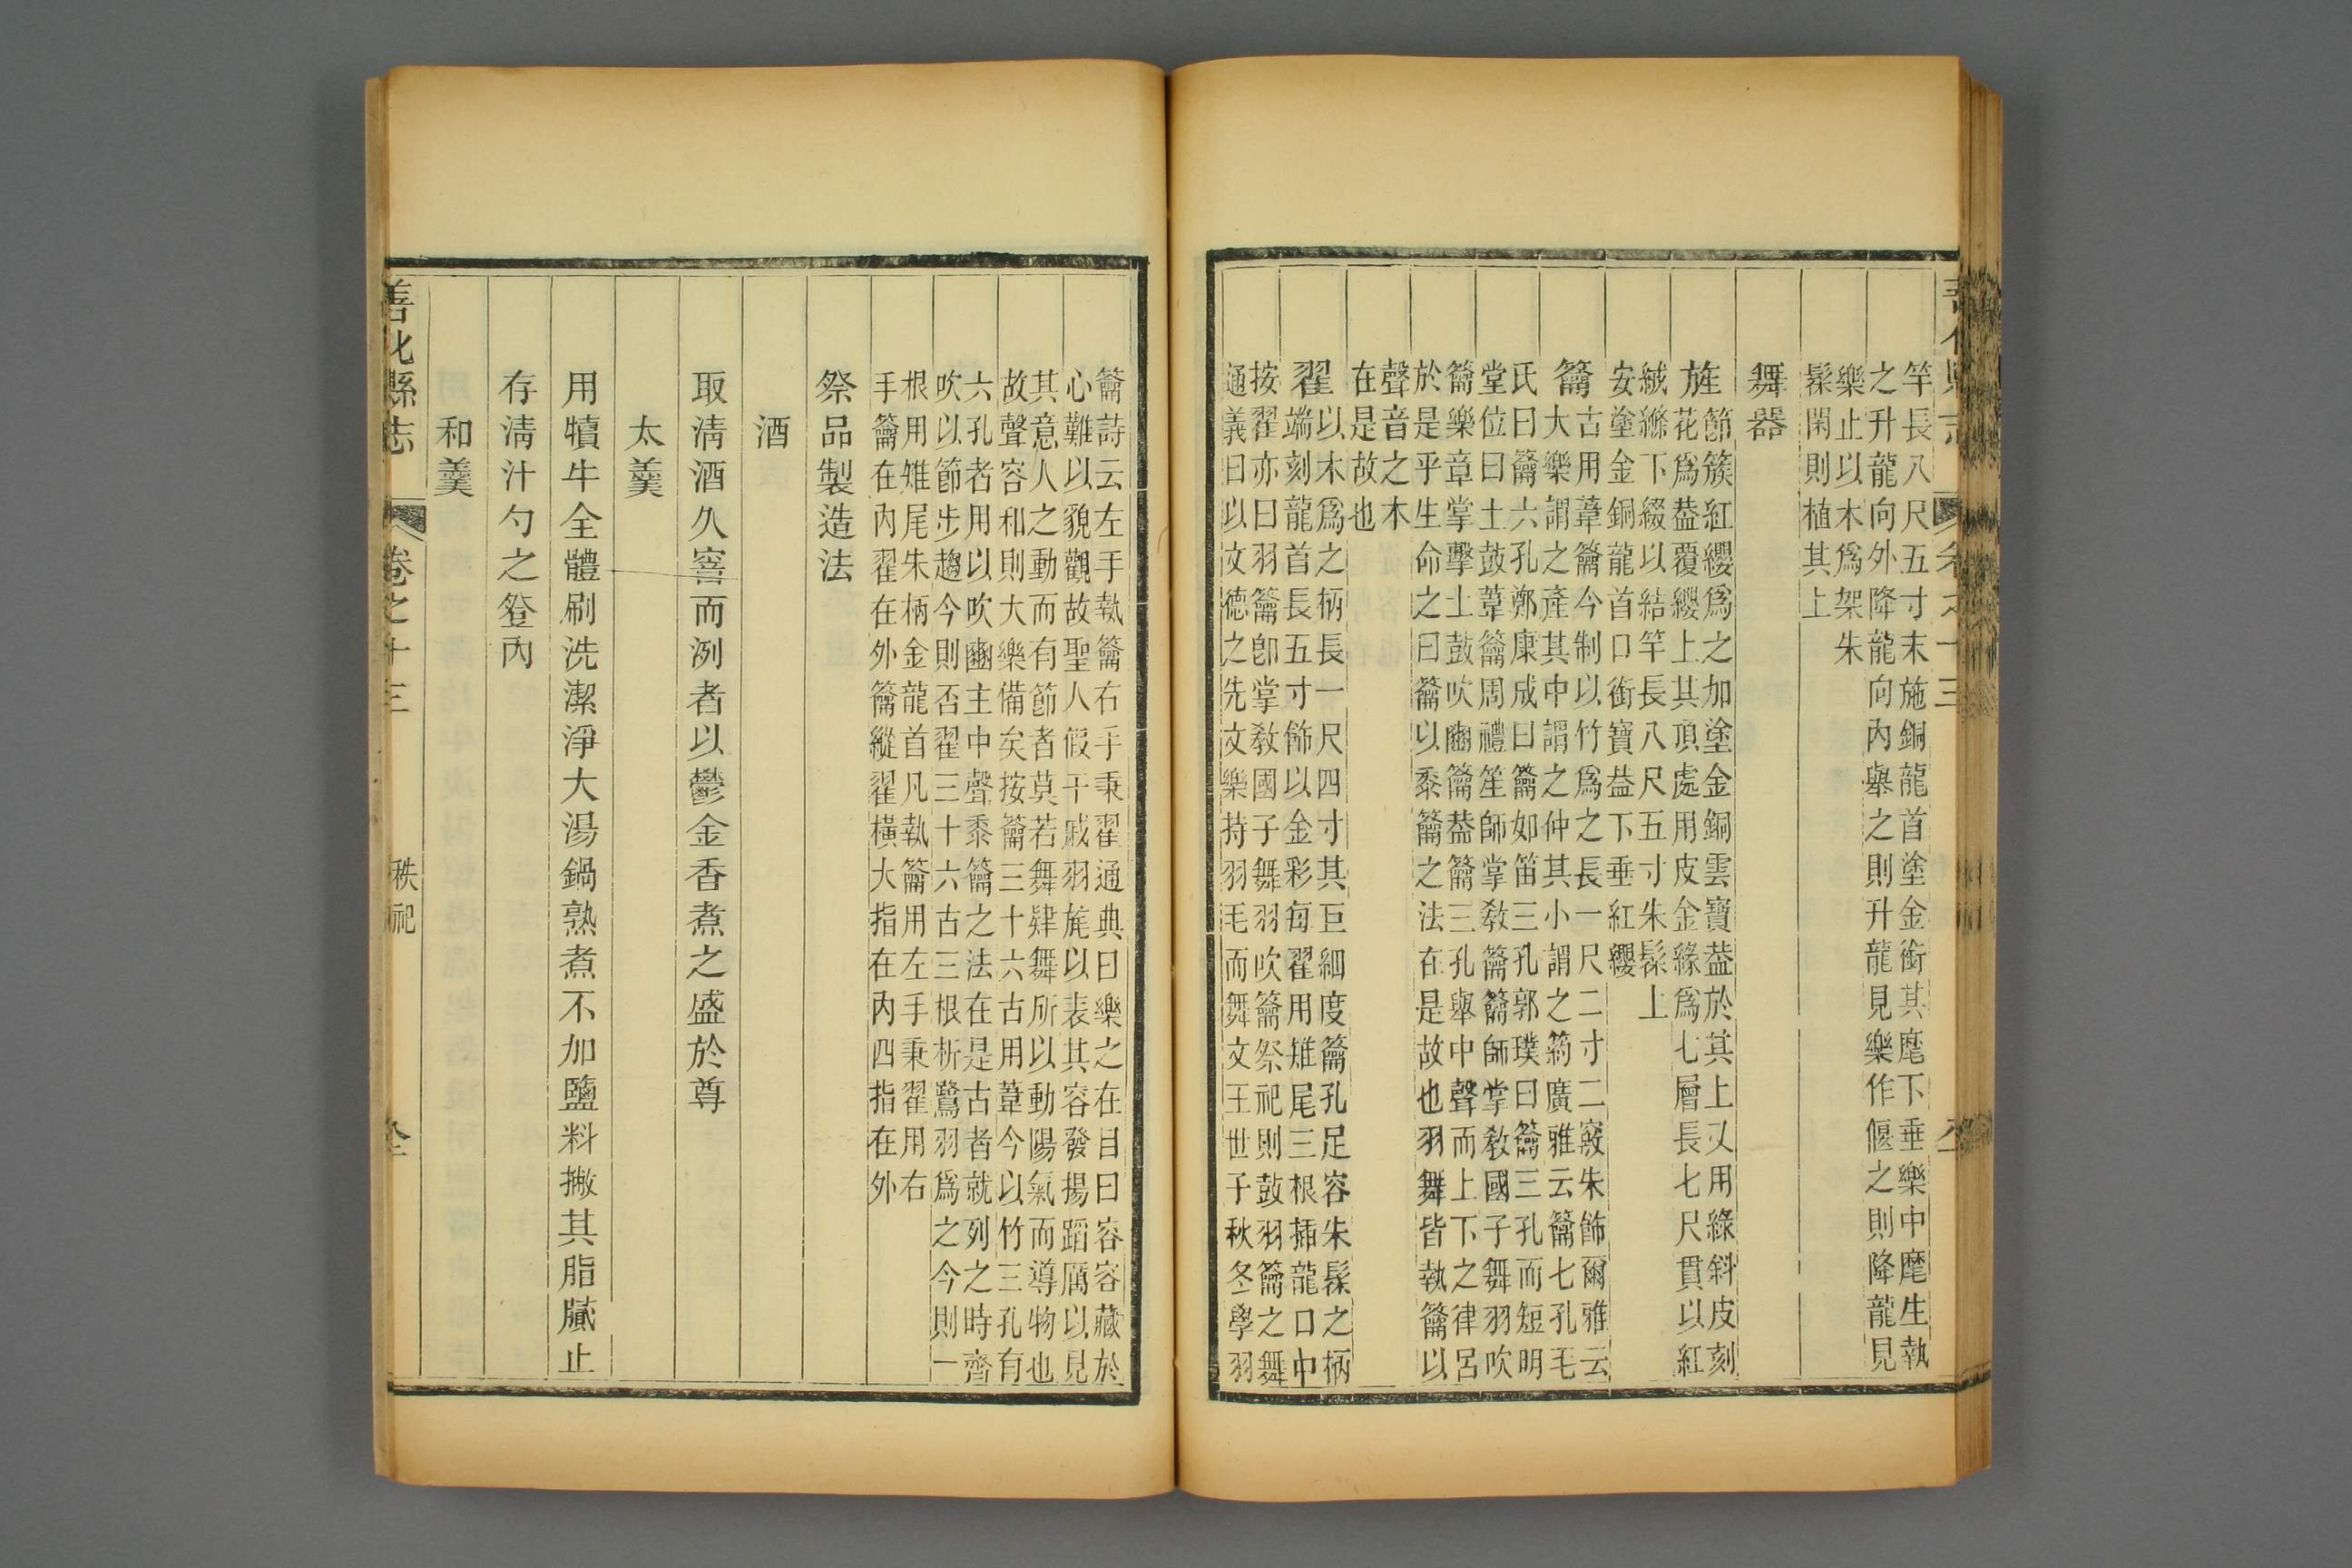 竿長八尺五寸末施銅龍首塗金銜其麾下垂樂中麾生執
之升龍向外降龍向內舉之則升龍見樂作偃之則降龍見
樂止以木爲架朱
髹閑則植其上
舞器
旌
節簇紅纓爲之加塗金銅雲寶葢於其上又用綠斜皮刻
花爲葢覆纓上其頂處用皮金緣爲七層長七尺貫以紅
絨縧下綴以結竿長八尺五寸朱髹上
安塗金銅龍首口銜寶葢下垂紅纓
籥
古用葦籥今制以竹爲之長一尺二寸二竅朱飾爾雅云
大樂謂之產其中謂之仲其小謂之箹廣雅云籥七孔毛
氏曰籥六孔鄭康成曰籥如笛三孔郭璞曰籥三孔而短明
堂位曰土鼓葦籥周禮笙師掌教籥籥師掌教國子舞羽吹
籥樂章掌擊土鼓吹豳籥葢籥三孔舉中聲而上下之律呂
於是乎生命之曰籥以黍籥之法在是故也羽舞皆執籥以
聲音之木
在是故也
翟
以木爲之柄長一尺四寸其巨細度籥孔足容朱髹之柄
端刻龍首長五寸飾以金彩每翟用雉尾三根插龍口中
按翟亦曰羽籥卽掌教國子舞羽吹籥祭祀則鼓羽籥之舞
通義曰以文德之先文樂持羽毛而舞文王世子秋冬學羽
籥詩云左手執籥右手秉翟通典曰樂之在目曰容容藏於
心難以貌觀故聖人假干戚羽旄以表其容發揚蹈厲以見
其意人之動而有節者莫若舞肄舞所以動陽氣而導物也
故聲容和則大樂備矣按籥三十六古用葦今以竹三孔有
六孔者用以吹豳主中聲黍籥之法在是古者就列之時齊
吹以節步趨今則否翟三十六古三根析鷺羽爲之今則一
根用雉尾朱柄金龍首凡執籥用左手秉翟用右
手籥在內翟在外籥縱翟橫大指在內四指在外
祭品製造法
酒
取清酒久窨而洌者以鬱金香煮之盛於尊
太羹
用犢牛全體刷洗潔淨大湯鍋熟煮不加鹽料撇其脂膩止
存清汁勺之豋內
和羹
善化縣志
卷之十三
秩祀